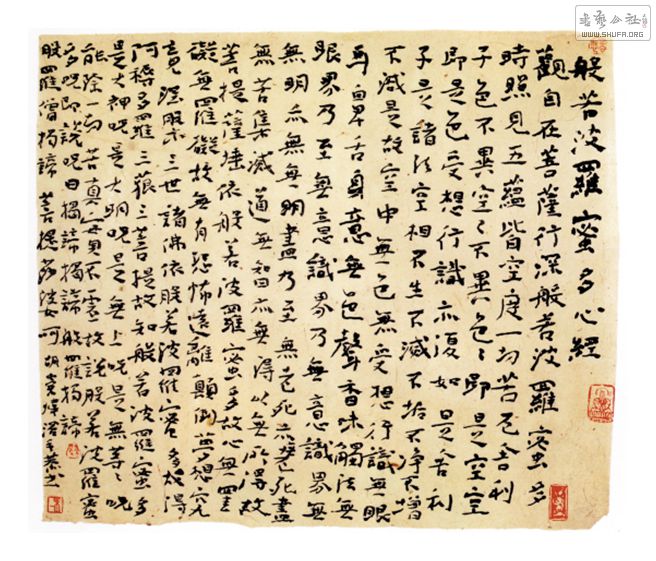 般若波羅蜜多心經
觀自在菩薩行深般若波羅蜜多
時照見五蘊皆空度一切苦厄舍利
子色不異空空不異色色即是空空
即是色受想行識亦復如是舍利
子是諸法空相不生不滅不垢不淨不增
不減是故空中無色無受想行識無眼
耳鼻舌身意無色聲香味觸法無
眼界乃至無意識界乃無意識界無
無明亦無無明盡乃至無老死亦無老死盡
無苦集滅道無知亦無得以無所得故
菩提薩埵依般若波羅蜜多故心無罣
礙無罣礙故無有恐怖遠離顛倒夢想究
竟涅槃三世諸佛依般若波羅蜜多故得
阿耨多羅三藐三菩提故知般若波羅蜜多
是大神咒是大明咒是無上咒是無等等咒
能除一切苦真實不虛故說般若波羅蜜
多咒即說咒曰揭諦揭諦般羅揭諦
般羅僧揭諦 菩提薩婆訶
書藝公社
WWW.SHUFA.ORG